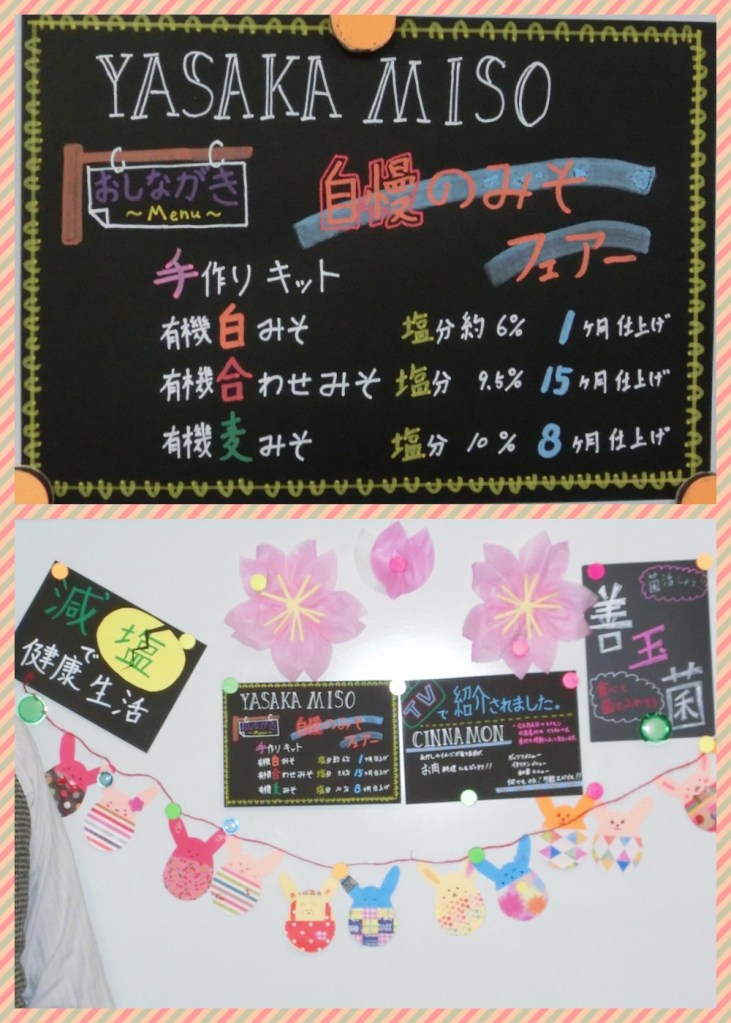 YASAKA MISO
おしながき
～Menu～
自慢のみそ
フェアー
手作りキット
有機白みそ 塩分約 6% 1ヶ月仕上げ
有機合わせみそ 塩分 9.5% 15ヶ月仕上げ
有機麦みそ 塩分 10% 8ヶ月仕上げ
減塩で
健康生活
YASAKA MISO
自慢のみそ
フェアー
手作りキット
有機白みそ 塩分約6% 1ヶ月仕上げ
有機合わせみそ 塩分 9.5% 15ヶ月仕上げ
有機麦みそ 塩分 10% 8ヶ月仕上げ
TVで紹介されました。
CINNAMON
菌活しよう
善玉菌